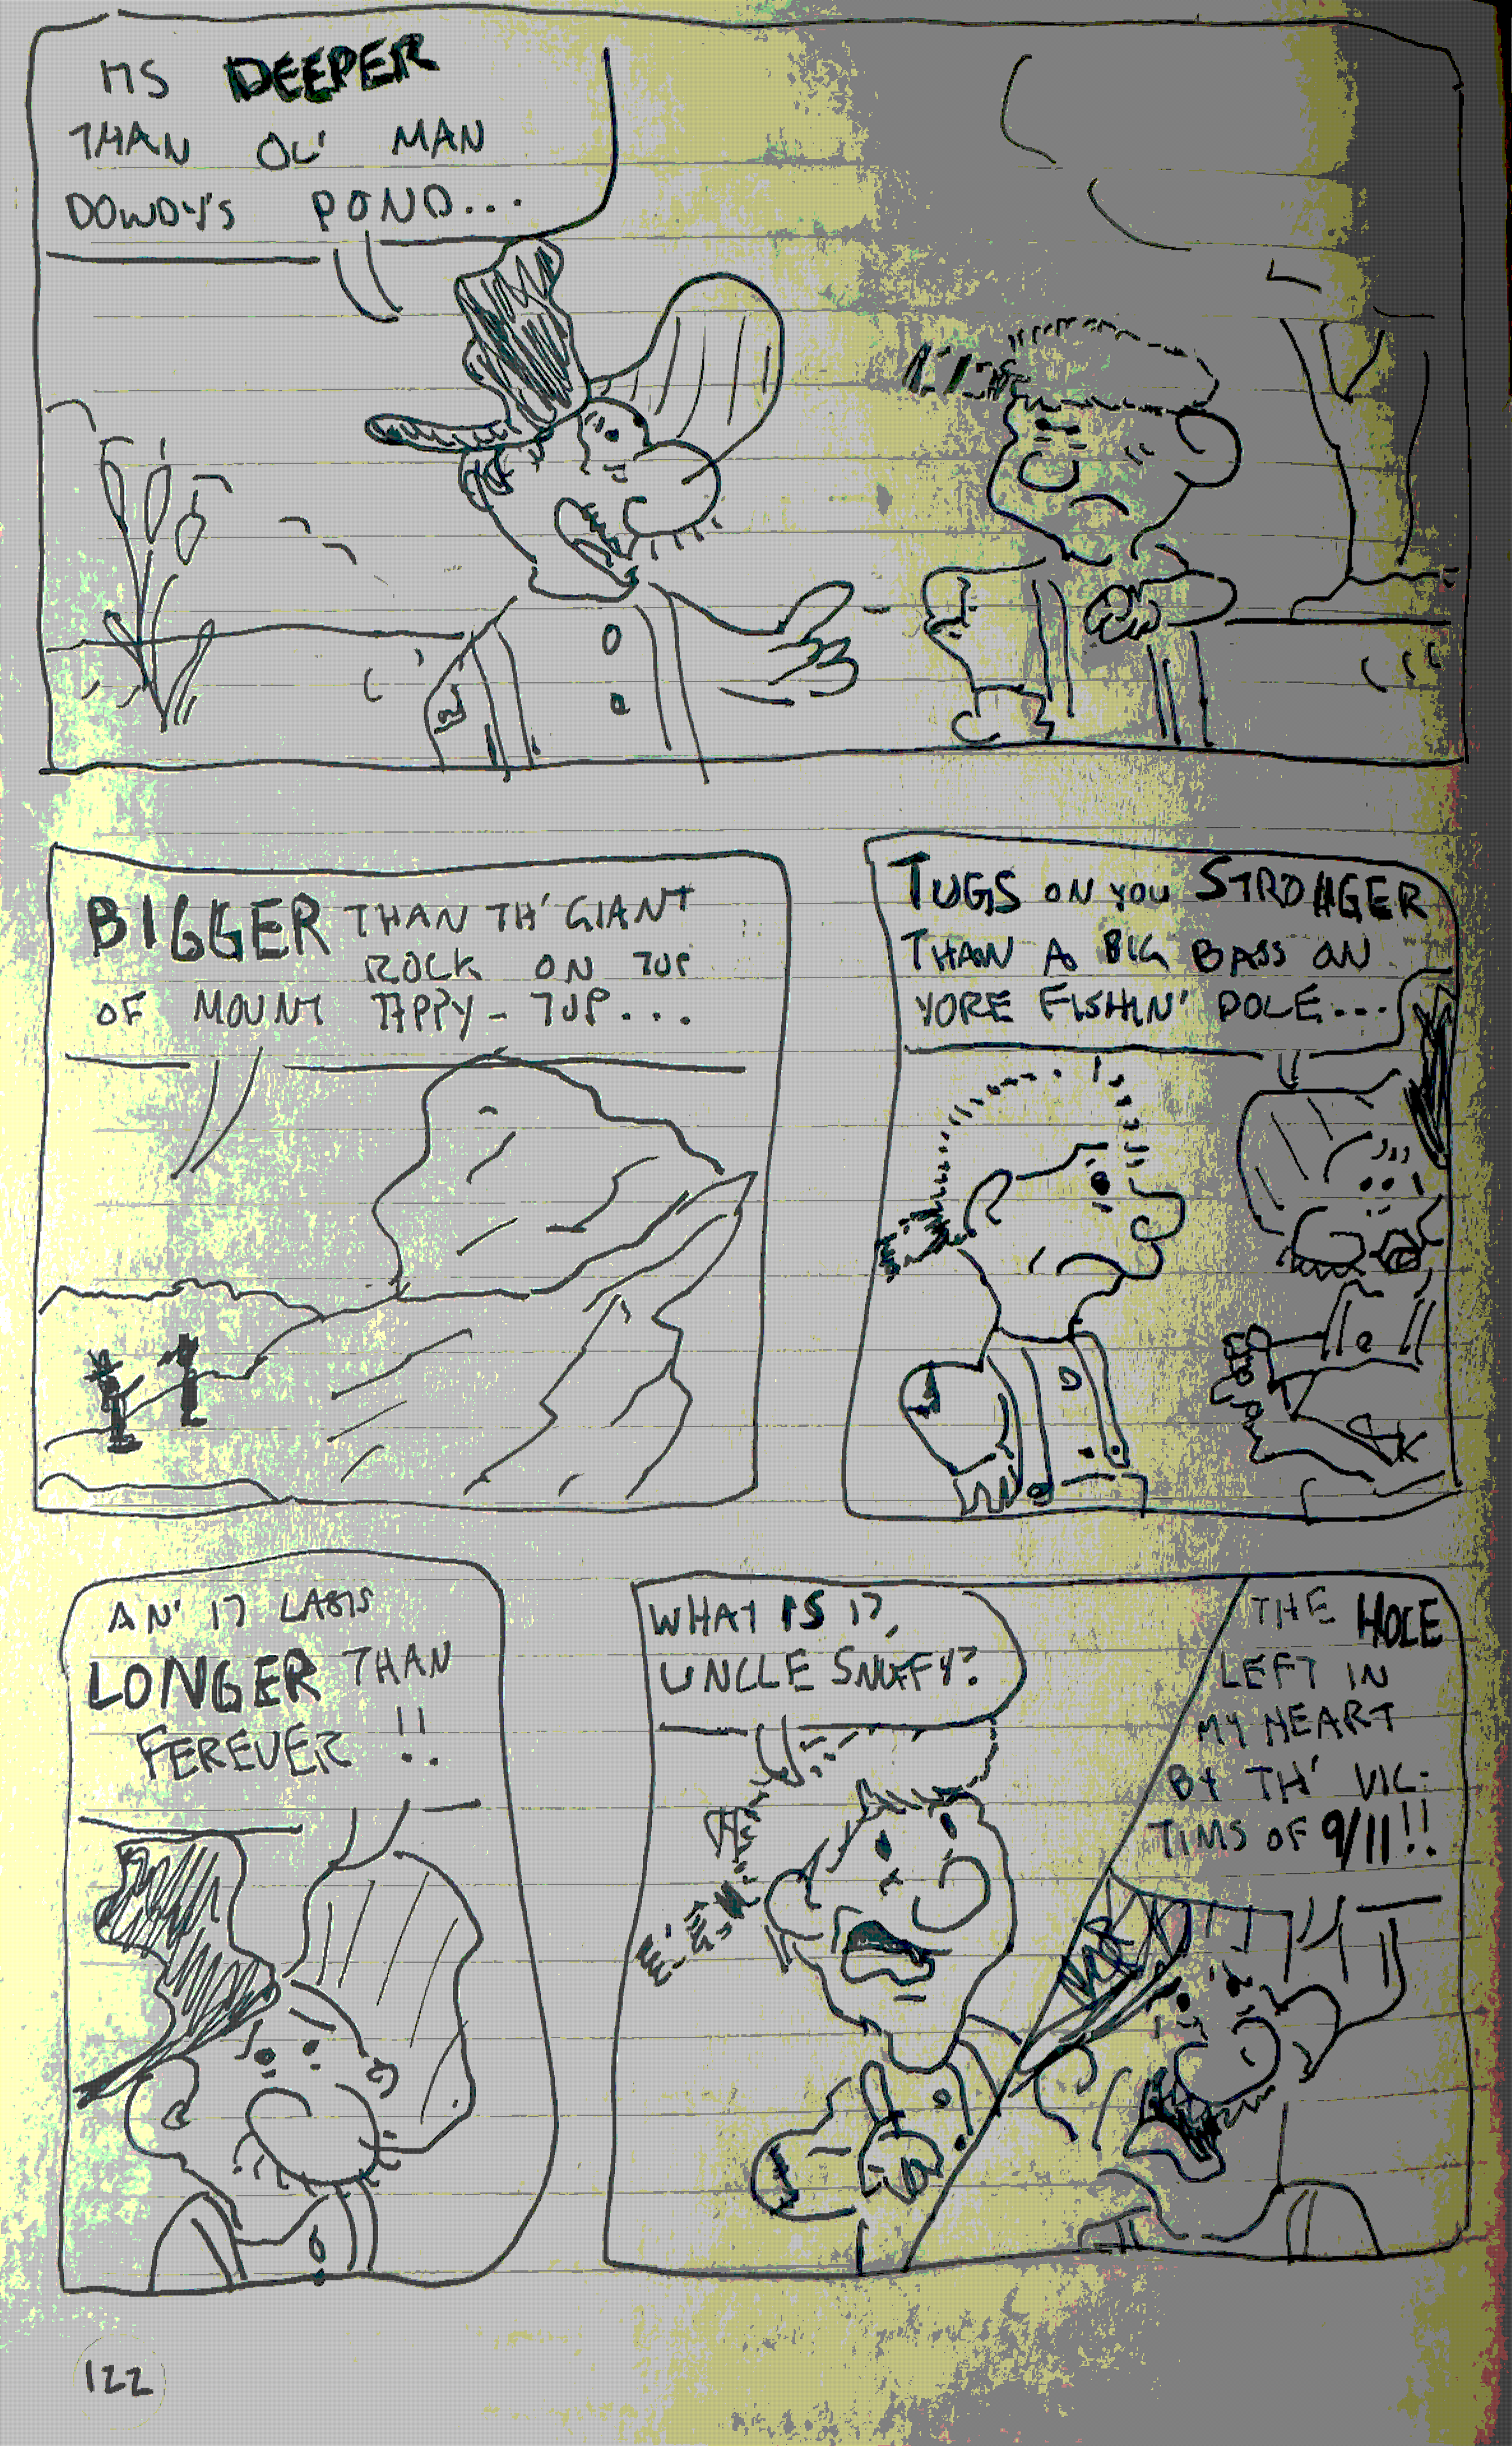 ITS DEEPER
THAN OL' MAN
DOWDY'S POND...
BIGGER THAN TH' GIANT
ROCK ON TOP
OF MOUNT TIPPY-TOP...
TUGS ON YOU STRONGER
THAN A BIG BASS ON
YORE FISHIN' POLE...
AN' IT LASTS
LONGER THAN
FEREVER!!
WHAT IS IT,
UNCLE SNUFFY?
THE HOLE
LEFT IN
MY HEART
BY TH' VIC-
TIMS OF 9/11!!
122